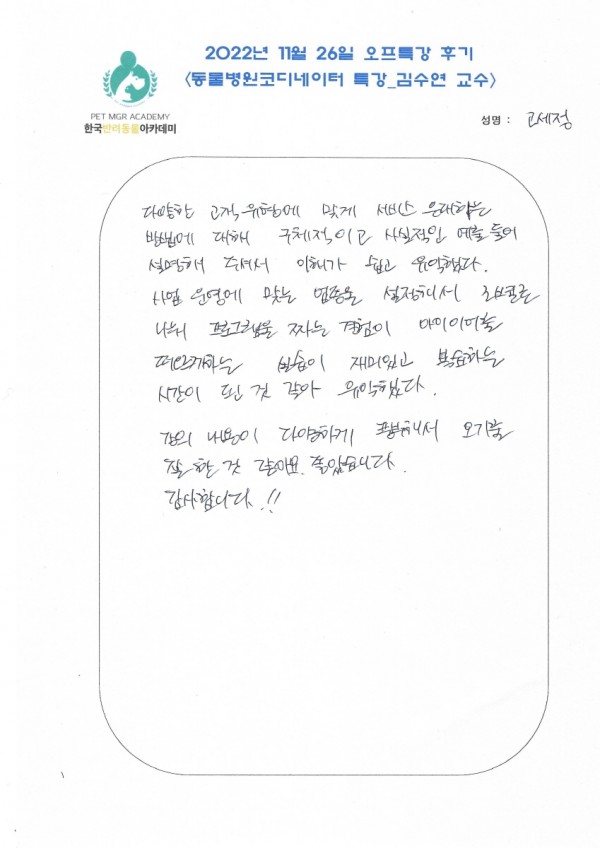 2022년 11월 26일 오프특강 후기
<동물병원코디네이터 특강_김수연 교수>
PET MGR ACADEMY
한국반려동물아카데미
성명 : 고세정
다양한 고객 유형에 맞게 서비스 응대하는
방법에 대해 구체적이고 사실적인 예를 들어
설명해 주셔서 이해가 쉽고 유익했다.
사업 운영에 맞는 업종을 설정해서 조별로
나눠 프로그램을 짜는 경험이 아이디어를
떠올리는 실습이 재미있고 복습하는
시간이 된 것 같아 유익했다.
강의 내용이 다양하게 풍부해서 오기를
잘 한 것 같아요. 좋았습니다.
감사합니다.!!